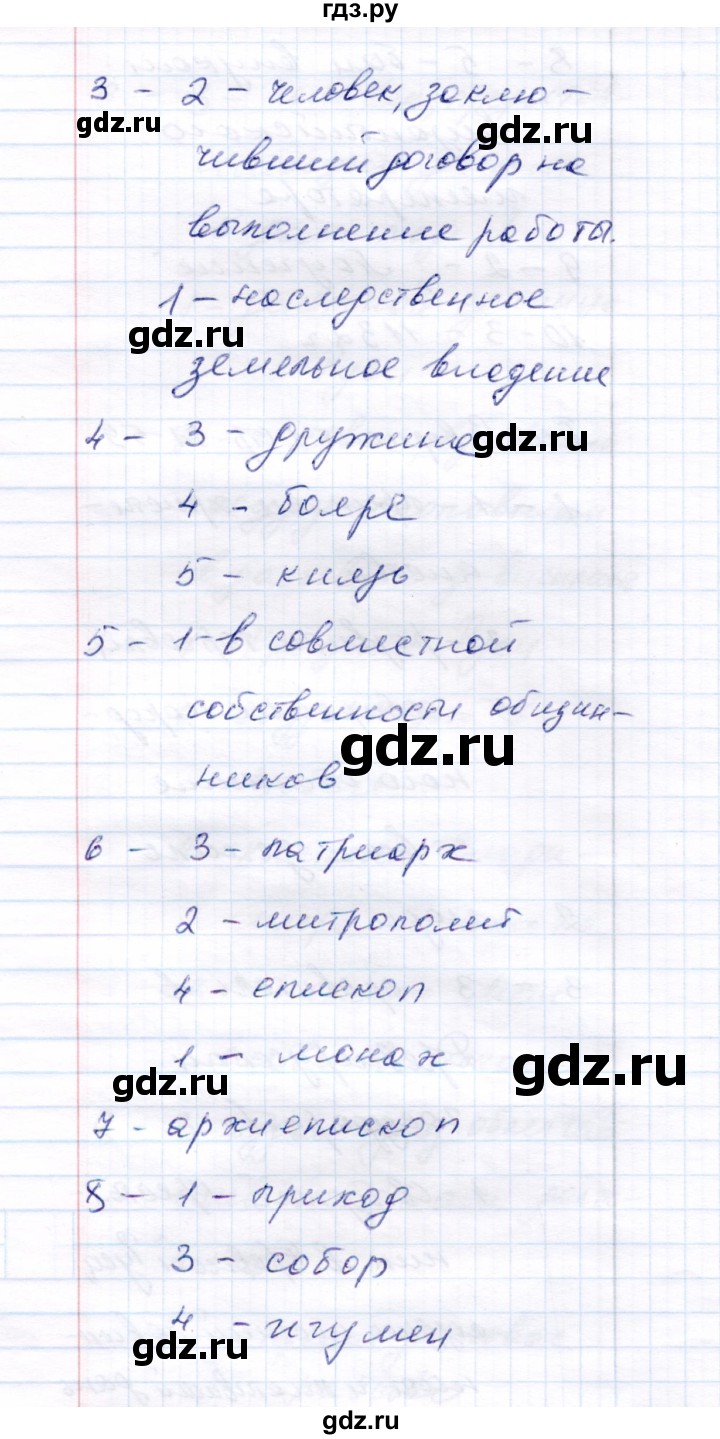 гдз.ру
3 - 2 - человек, заклю-
gdz.ru
gdz.ru
чивший договор на
выполнение работы.
1 - наследственное
gdz.ru
земельное владение
4 - 3 - дружина
gdz.ru
4 - бояре
5 - князь
5 - 1 - в совместной
собственности общин-
gdz.ru
ников
6 - 3 - патриарх
2 - митрополит
4 - епископ
1 - монах
gdz.ru
gdz.ru
7 - архиепископ
8 - 1 - приход
3 - собор
4 - игумен
gdz.ru
gdz.ru